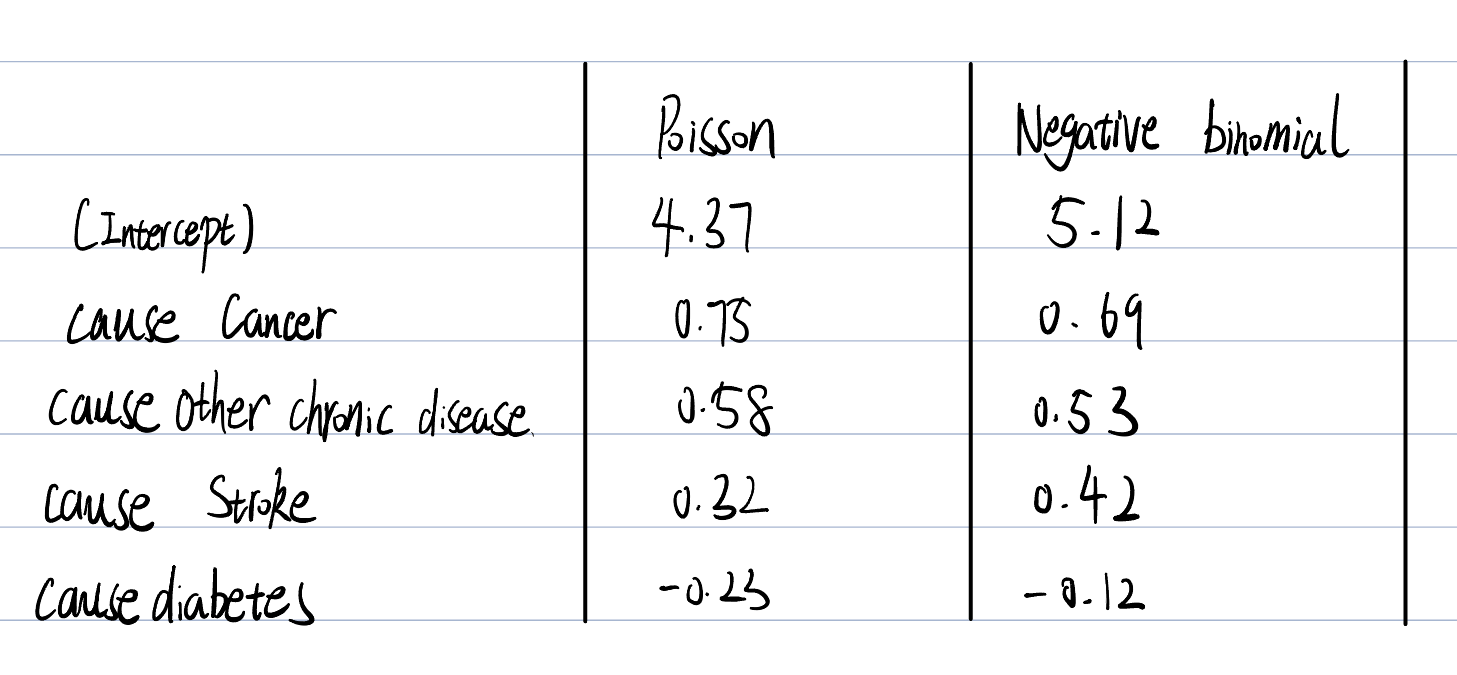 Poisson Negative binomial
(Intercept) 4.37 5.12
cause Cancer 0.75 0.69
cause other chronic disease. 0.58 0.53
cause Stroke 0.32 0.42
cause diabetes -0.23 -0.12